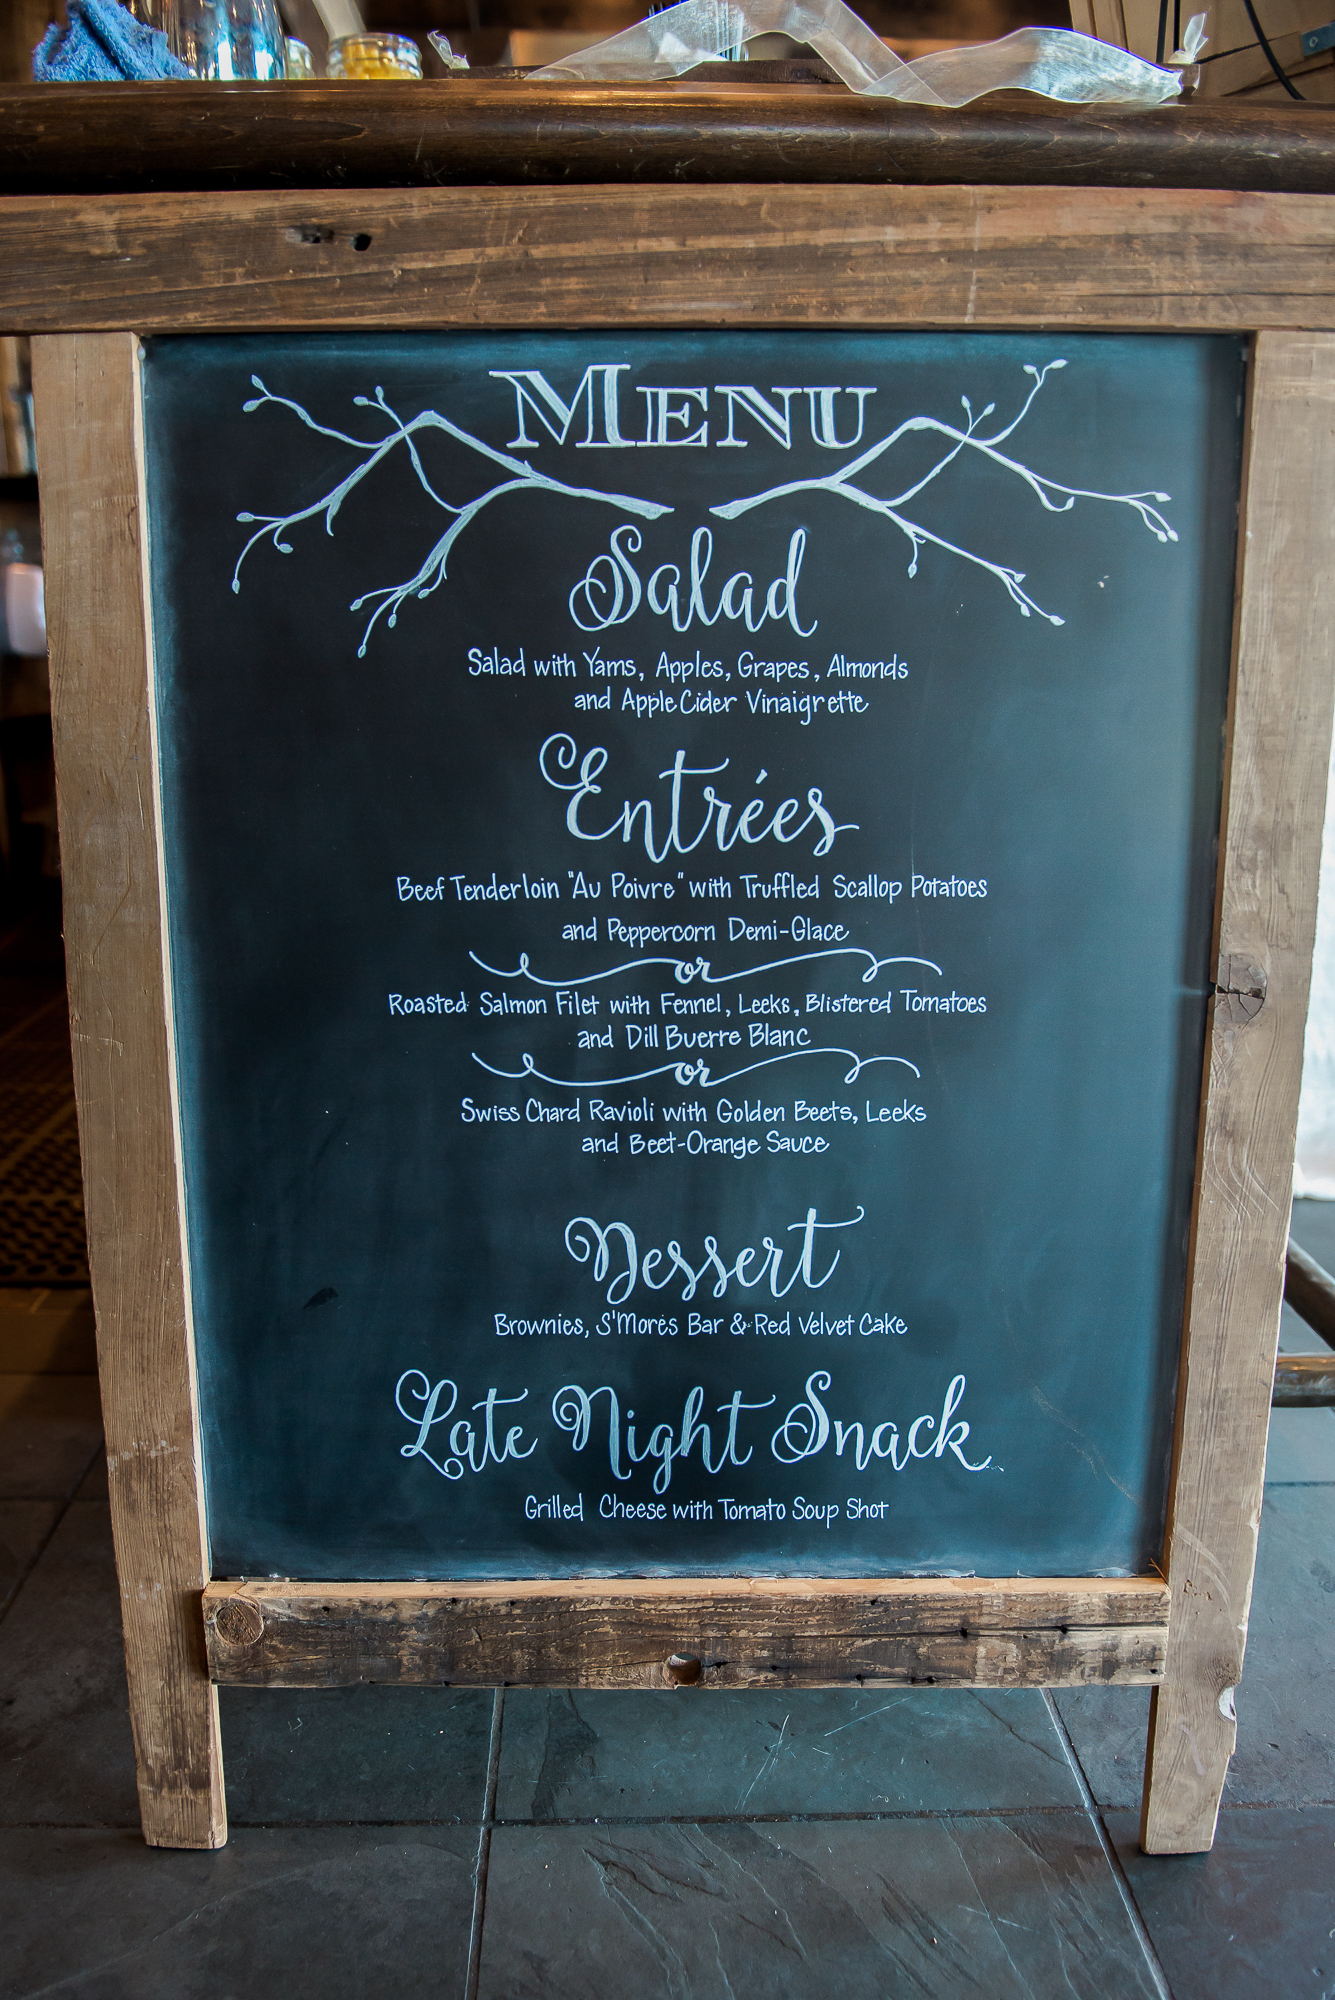 MENU
Salad
Salad with Yams, Apples, Grapes, Almonds
and Apple Cider Vinaigrette
Entrées
Beef Tenderloin "Au Poivre" with Truffled Scallop Potatoes
and Peppercorn Demi-Glace
or
Roasted Salmon Filet with Fennel, Leeks, Blistered Tomatoes
and Dill Buerre Blanc
or
Swiss Chard Ravioli with Golden Beets, Leeks
and Beet-Orange Sauce
Dessert
Brownies, S'Mores Bar & Red Velvet Cake
Late Night Snack
Grilled Cheese with Tomato Soup Shot